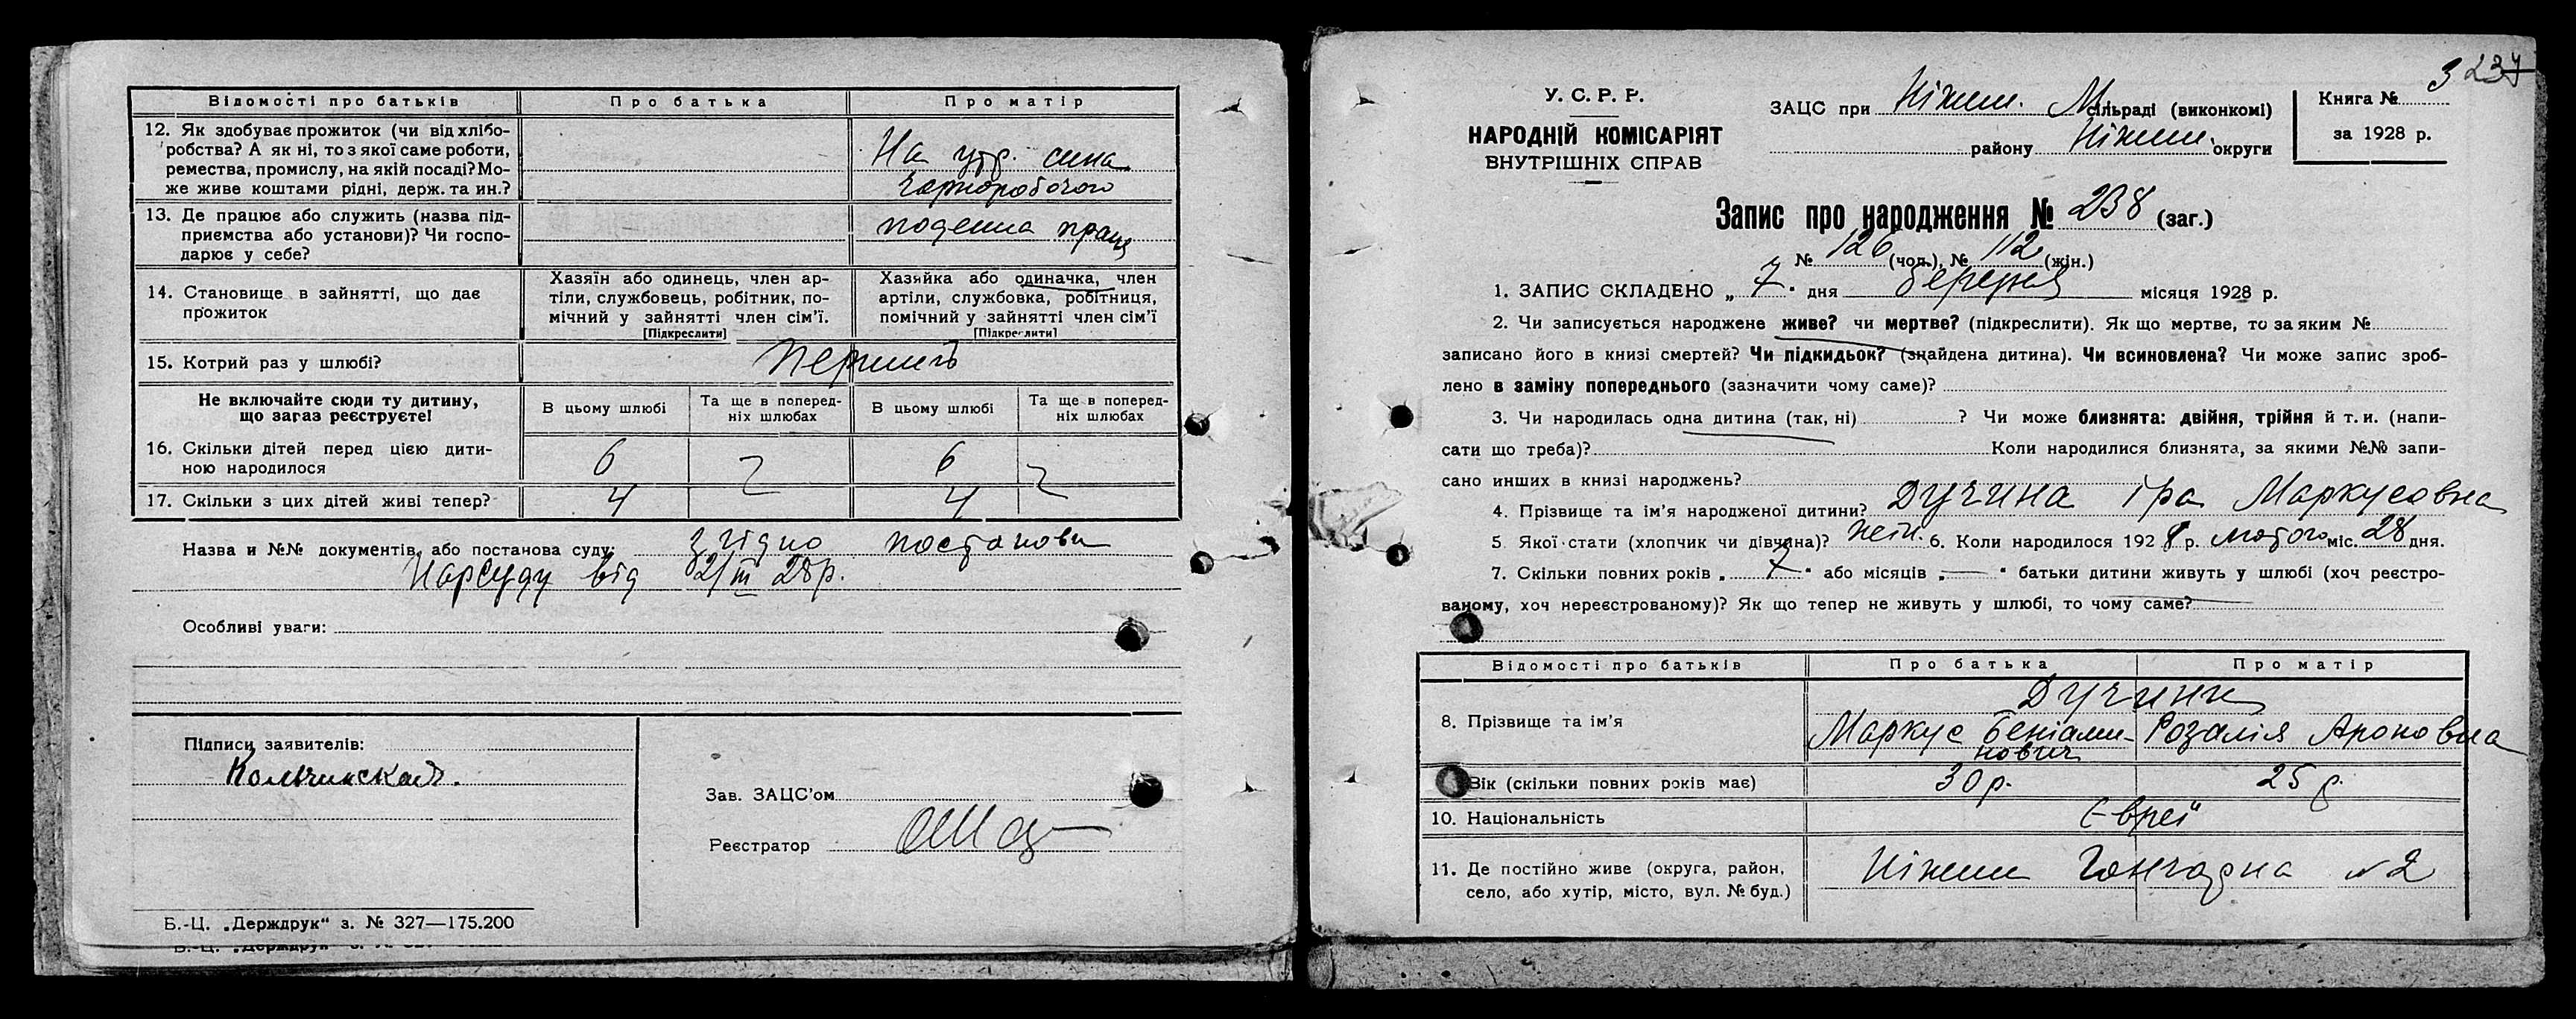 Відомості про батьків Про батька Про матір
12. Як здобуває прожиток (чи від хлібо-
робства? А як ні, то з якої саме роботи,
ремества, промислу, на якій посаді? Мо-
же живе коштами рідні, держ. та ин.?
На утр. сина
чорноробочого
13. Де працює або служить (назва під-
приємства або установи)? Чи госпо-
дарює у себе?
поденна праця
14. Становище в зайнятті, що дає
прожиток
Хазяїн або одинець, член ар-
тіли, службовець, робітник, по-
мічний у зайнятті член сім'ї.
[Підкреслити]
Хазяйка або одиначка, член
артіли, службовка, робітниця,
помічний у зайнятті член сім'ї
[Підкреслити]
15. Котрий раз у шлюбі?
Не включайте сюди ту дитину,
що загаз реєструєте!
В цьому шлюбі
Та ще в поперед-
ніх шлюбах
В цьому шлюбі
Та ще в поперед-
ніх шлюбах
16. Скільки дітей перед цією дити-
ною народилося
6 6
17. Скільки з цих дітей живі тепер? 4 4
Назва и №№ документів, або постанова суду: згідно постанови
Нарсуду від 2/III 28р.
Особливі уваги:
Підписи заявителів:
Зав. ЗАЦС'ом
Реєстратор
Б.-Ц. „Держдрук" з. № 327—175.200
237
У. С. Р. Р.
НАРОДНІЙ КОМІСАРІЯТ
ВНУТРІШНІХ СПРАВ
ЗАЦС при Ніжин. М. сільраді (виконкомі)
району Ніжин. округи
Книга № 3
за 1928 р.
Запис про народження № 238 (заг.)
№ 126 (чол.), № 112 (жін.)
1. ЗАПИС СКЛАДЕНО „ 7 " дня березня місяця 1928 р.
2. Чи записується народжене живе? чи мертве? (підкреслити). Як що мертве, то за яким №
записано його в книзі смертей? Чи підкидьок? (знайдена дитина). Чи всиновлена? Чи може запис зроб-
лено в заміну попереднього (зазначити чому саме)?
3. Чи народилась одна дитина (так, ні) ? Чи може близнята: двійня, трійня й т. и. (напи-
сати що треба)? Коли народилися близнята, за якими №№ запи-
сано инших в книзі народжень?
4. Прізвище та ім'я народженої дитини? Дучина Іра Маркусовна
5 Якої стати (хлопчик чи дівчина)? жін. 6. Коли народилося 1928 р. лютого міс. 28 дня.
7. Скільки повних років „ 7 " або місяців „ — " батьки дитини живуть у шлюбі (хоч реєстро-
ваному, хоч нереєстрованому)? Як що тепер не живуть у шлюбі, то чому саме?
Відомості про батьків Про батька Про матір
8. Прізвище та ім'я
Дучини
Маркус Беніами-
нович
Розалія Ароновна
Вік (скільки повних років має) 30 р. 25 р.
10. Національність Євреї
11. Де постійно живе (округа, район,
село, або хутір, місто, вул. № буд.)
Ніжин Гончарна № 2